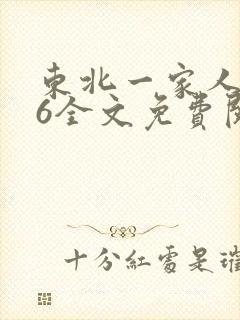 東北一家人
6全文免費閱
十分紅處是璀